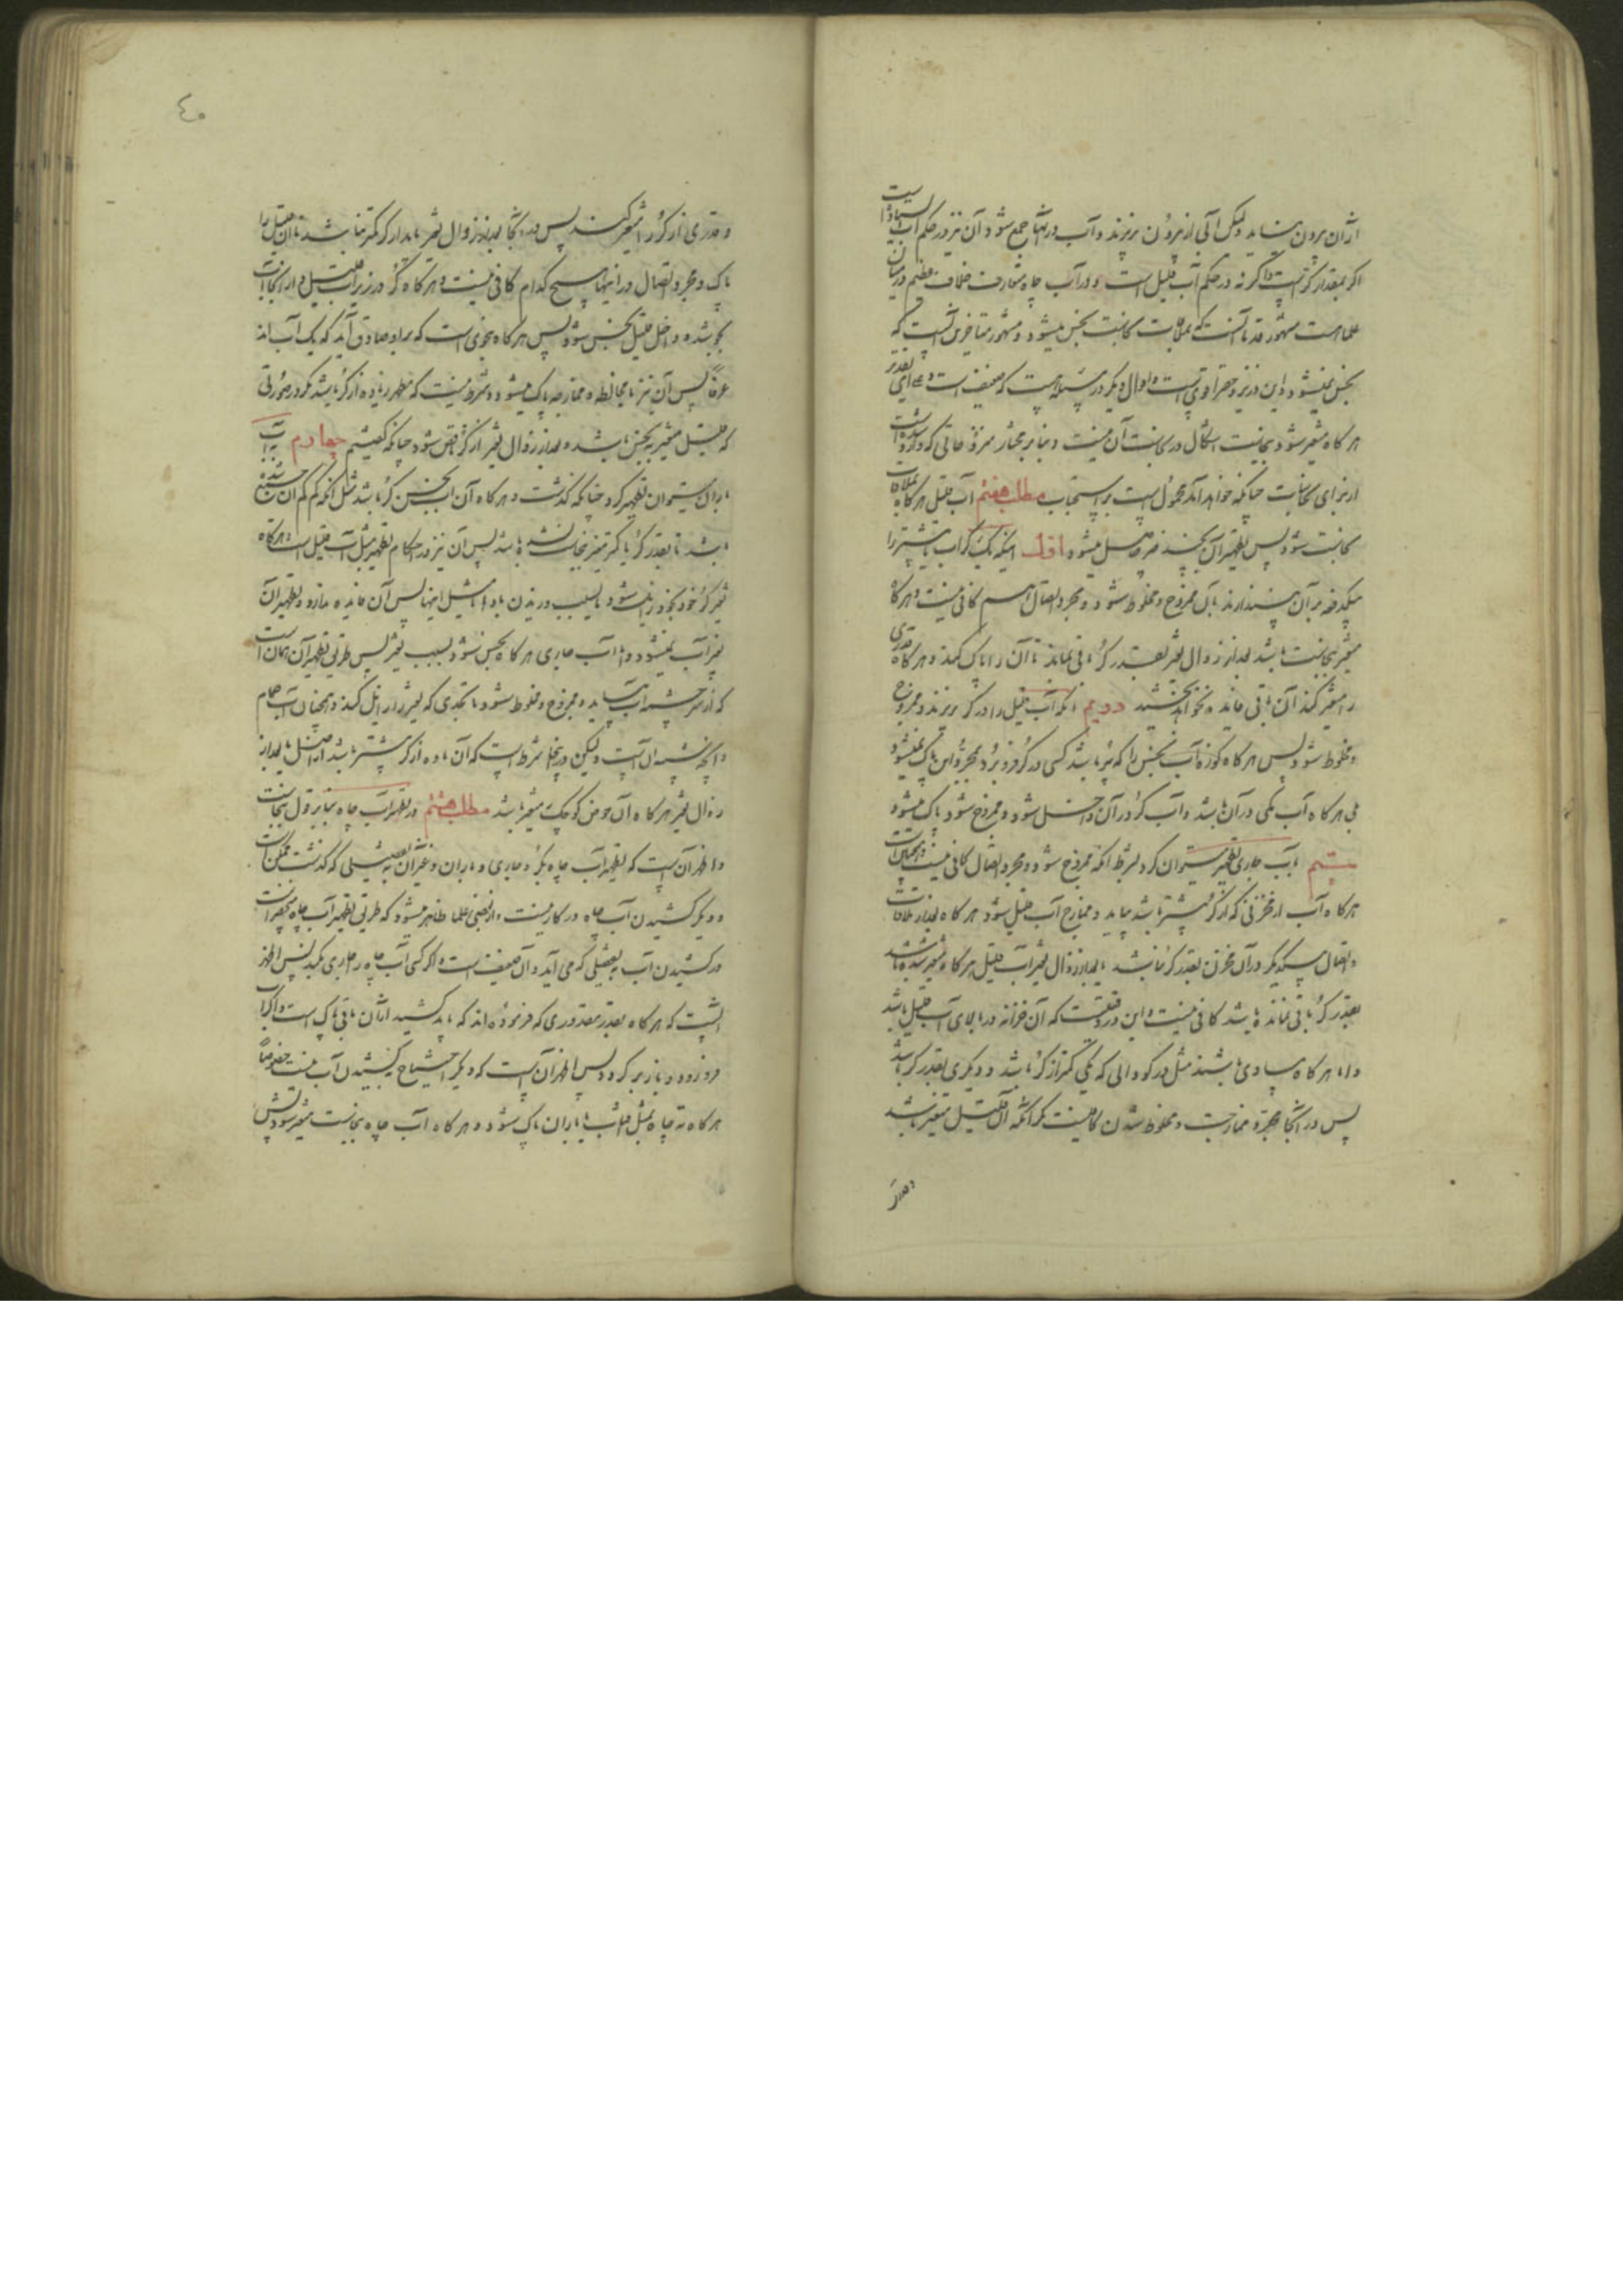 ازان برون نیاید ولیکن آبی از برون بریزند و آب در انجا جمع شود آن نیز در حکم آب ایستاده است
اگر بمقدار کر است و اگر نه در حکم آب قلیل است و در آب چاه متعارف خلاف عظیم در میان
علما هست مشهور قدما آنست که بملاقات نجاست نجس میشود و مشهور متاخرین آنست که
نجس نمیشود و این در نزد حقیر اقوی است و اقوال دیگر در مسئله هست که ضعیف است و علی ای تقدیر
هرگاه متغیر شود بنجاست اشکال در نجاست آن نیست و بنابر مختار حقیر نزح حاتی که وارد شده است
از برای نجاسات چنانکه خواهد آمد محمول است بر استحباب مطلب هفتم آب قلیل هرگاه بملاقات
نجاست شود پس تطهیر آن بچند امر حاصل میشود اول اینکه یک کر آب یا بیشتر را
یکدفعه بر آن بیندازند با آن ممزوج و مخلوط شود و مجرد اتصال هم کافی نیست و هرگاه
متغیر بنجاست باشد بعد از زوال تغیر بقدر کر باقی بماند تا آن را پاک کند و هرگاه قدری
را متغیر کند آن باقی فایده نخواهد بخشید دویم آنکه آب قلیل را در کر بریزند و ممزوج
و مخلوط شود پس هرگاه کوزه آب نجس را که پر باشد کسی در کر فرو برد بمجرد این پاک نمیشود
بلی هرگاه آب کمی در آن باشد و آب کر در آن داخل شود و ممزوج شود پاک میشود
سیم بآب جاری تطهیر میتوان کرد بشرط آنکه ممزوج شود و مجرد اتصال کافی نیست و همچنین است
هرگاه آب از مخزنی که از کر بیشتر باشد بیاید و ممازج آب قلیل شود هرگاه بعد از ملاقات
و اتصال بیکدیگر در آن مخزن بقدر کر نباشد یا بعد از زوال تغیر آب قلیل هرگاه متغیر شده باشد
بقدر کر باقی نمانده باشد کافی نیست و این در وقتیست که آن خزانه در بالای آب قلیل باشد
و اما هرگاه مساوی باشند مثل دو گودالی که یکی کمتر از کر باشد و دیگری بقدر کر باشد
پس در انجا بمجرد ممازجت و مخلوط شدن کافیست مگر آنکه آن قلیل متغیر باشد
و قدری
٤٠
و قدری از کر را متغیر کند پس در انجا بعد از زوال تغیر باید از کر کمتر نباشد تا آن قلیل را
پاک و مجرد اتصال در اینها هیچ کدام کافی نیست و هرگاه کر در زیر آب قلیل و از انجا آب
بجوشد و داخل قلیل نجس شود پس هرگاه بنحوی است که بر او صادق آید که یک آب اند
عرفا پس آن نیز بمخالطه و ممازجه پاک میشود و شرط نیست که مطهر زیاده از کر باشد مگر در صورتی
که قلیل متغیر بنجس باشد و بعد از زوال تغیر از کر ناقص شود چنانکه گفتیم چهارم بآب
باران میتوان تطهیر کرد چنانکه گذشت و هرگاه آن آب نجس کر باشد مثل آنکه کم کم آن جمع شده
باشد تا بقدر کر یا کمتر متغیر بنجاست شده باشد پس آن نیز در احکام تطهیر مثل آب قلیل است و هرگاه
تغیر کر خود بخود زایل شود یا بسبب وزیدن باد یا مثل اینها پس آن فایده ندارد و تطهیر آن
بغیر آب نمیشود و اما آب جاری هرگاه نجس شود بسبب تغیر پس طریق تطهیر آن همان است
که از سرچشمه آب بیاید و ممزوج و مخلوط شود تا بحدی که تغیر را زایل کند و همچنان آب حمام
و آنچه شبیه آن است ولیکن در اینجا شرط است که آن ماده از کر بیشتر باشد از اصل یا بعد از
زوال تغیر هرگاه آن حوض کوچک متغیر باشد مطلب هشتم در تطهیر آب چاه بنابر قول بنجاست
و اظهر آن است که تطهیر آب چاه بکر و جاری و باران و غیر آن بتفصیلی که گذشت ممکن است
و دیگر کشیدن آب چاه در کار نیست و از بعضی علما ظاهر میشود که طریق تطهیر آب چاه منحصر است
در کشیدن آب بتفصیلی که می آید و آن ضعیف است و اگر کسی آب چاه را جاری بکند پس اظهر
آنست که هرگاه بقدر مقدوری که فرموده اند که باید کشید از آن باقی پاک است و اگر آب
فرو رود و باز برگردد پس اظهر آنست که دیگر احتیاج بکشیدن آب نیست خصوصا
هرگاه ته چاه بمثل آفتاب یا باران پاک شود و هرگاه آب چاه بنجاست متغیر شود پس